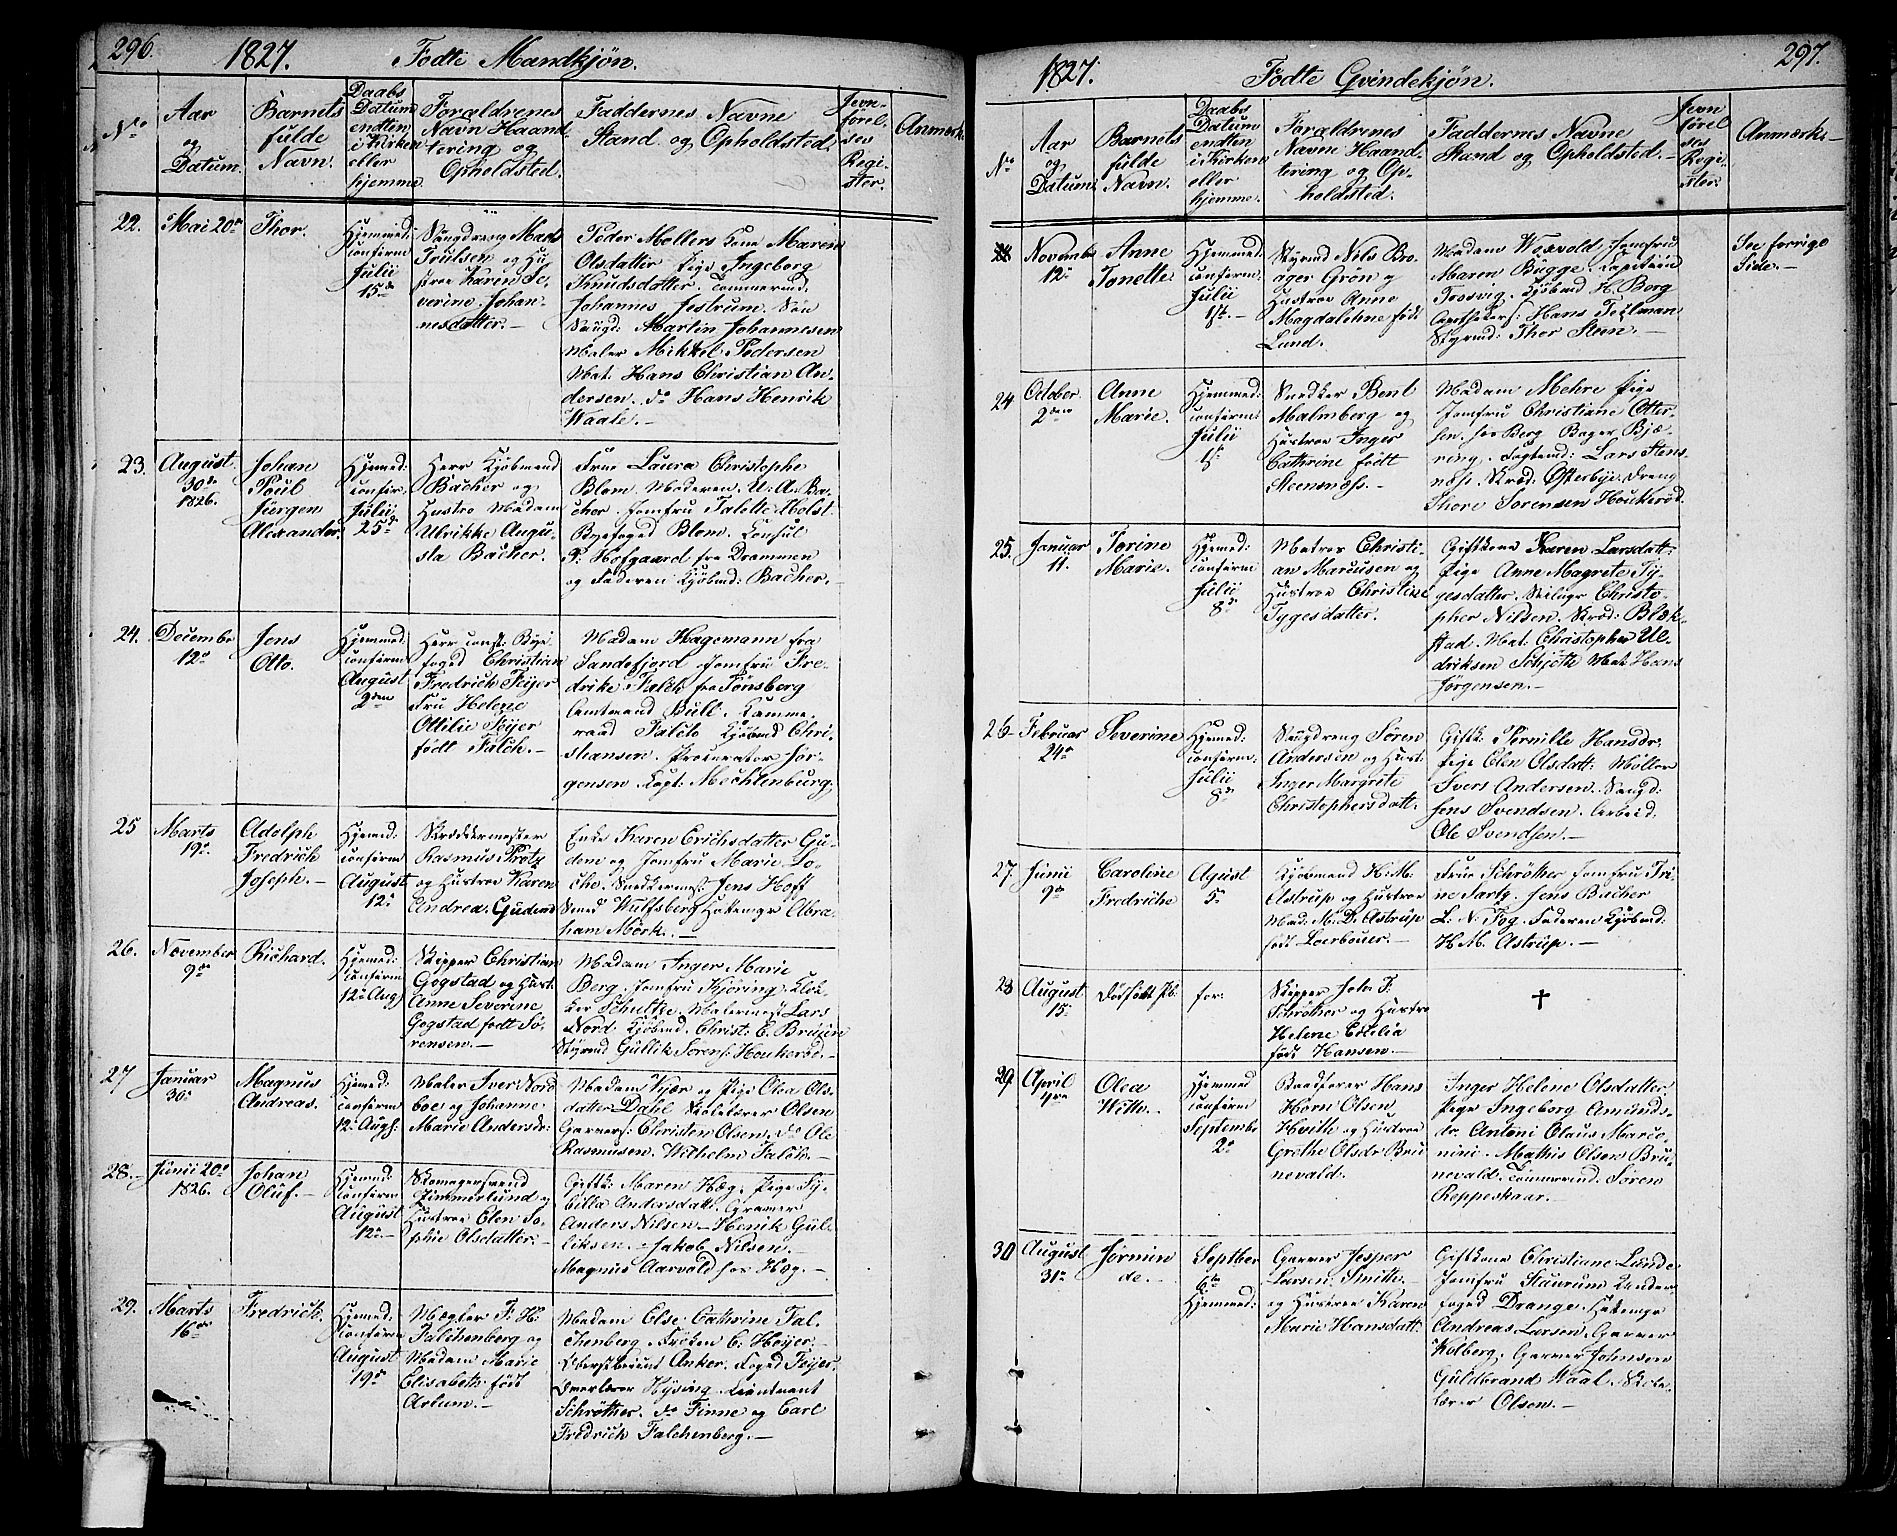 296.
1827. Fødte Mandkjøn.
No
Aar
og
Datum.
Barnets
fulde
Navn.
Daabs
Datum
endten
i Kirken
eller
hjemme.
Foraldrenes
Navn Haand
tering og
Opholdsted.
Faddernes Navne
Stand og Opholdsted.
Jevn-
førel-
ses
Regi-
ster.
Anmærk
22.
Mai 20de
Thor.
Hjemmed:
confirm
Julii
15de
Mads
Trulsen og Hu-
stroe Karen Se-
verine Johan-
nesdatter.-
Peder Møllers Kone Maren
Olsdatter Pige Ingeborg
Knudsdatter. Tømmermd.
Johannes Jestrum. Søn
Martin Johannesen
Maler Mikkel Pedersen
Mat. Hans Christian An-
dersen. do Hans Henrik
Waale.-
23.
August
30te
1826.
Johan
Poul
Jørgen
Alexander.
Hjemed:
confir.
Julii
25de
Herr Kjøbmand
Bacher og
Hustro Madam
Ulrikke Augu-
sta Bacher.
Frue Laura Christophe
Blom. Moderen. U: A: Ba-
cher. Jomfru Talette Molst
Byefoged Blom. Consul
P. Hofgaard fra Drammen
og Faderen Kjøbmd: Bacher.
24.
Decembr
12te
Jens
Otto.
Hjemmed.
confirm
August
2den
Herr const. Bye-
foged Christian
Fredrich Feijer
Fru Helene
Ottilie Feijer
født Falch.-
Madam Hagemann fra
Sandefjord Jomfru Fre-
drike Falch fra Tønsberg
Amtmand Bull. Kamme-
raad Falch Kjøbmd Chri-
stiansen. Procurator Jør-
gensen Capt: Mechlenburg.
25
Marts
19de
Adolph
Fredrich
Joseph.-
Hjemed:
confirm
August
12te
Skræddermester
Rasmus Protz
og Hustroe Karen
Andrea. Gudem
Enke Karen Erichsdatter Gu-
dem og Jomfru Marie Lo-
che. Snedkermst. Jens Hoff
Smed Wulfsberg Hattemgr Abra-
ham Mørk.-
26.
November
9de
Richard.
Hjemed:
confirm
12te Aug
Skipper Christian
Gogstad og Hust.
Anne Severine
Gogstad født Sø-
rensen.-
Madam Inger Marie
Berg. Jomfru Kjøring. Klok-
ker Schultze Malermest Lars
Nord. Kjøbmd. Christ: E. Bruun
Styrmd Gullik Sørens: Houkerød.-
27
Januar
30te
Magnus
Andreas.
Hjemed:
confirm
12te Augs.
Maler Iver Nord
boe og Johanne
Marie Andersdr.
Madam Kjær og Pige Olea Ols-
datter Dahl Skolelærer Olsen
Garvers: Christen Olsen. do Ole
Rasmusen. Wilhelm Falck.-
28.-
Junii 20de
1826.
Johan
Oluf.-
Hjemed:
confirm
August
12te
Skomagersvend
Zimmerlund og
Hustroe Elen So-
phie Olsdatter.-
Giftk: Maren Hæg. Pige Sy-
billa Andersdatt. Gramer
Anders Nilsen - Henik Gul-
liksen.- Jakob Nilsen.-
Magnus Aarvold hos Hæg.-
29.
Marts
16de
Fredrich.
Hjemed:
confirm
August
19de
Mægler F: H:
Falchenberg og
Madam Marie
Elisabeth født
Arlum.-
Madam Else Cathrine Fal-
chenberg Frøken C: Heyer.
Anker. Foged Feijer.
Overlærer Hysing. Lieutenant
Schrøther. do Finne og Carl
Fredrich Falchenberg.-
297.
1827. Fødte Qvindekjøn.
No
Aar
og
Datum
Barnets
fulde
Navn.
Daabs
Datum
endten
i Kirken
eller
hjemme.
Foraldrenes
Navne Haand-
tering og Op-
holdsted.
Faddernes Navne
Stand og Opholdsted.-
Jevn
førel
ses
Regi-
ster.
Anmærks-
Novembr
12te
Anne
Tonette.
Hjemmed:
confirm:
Julii
1ste.-
Styrmd Nils Bro-
ager Grøn og
Hustroe Anne
Magdalehne født
Lund.
Madam Woxvold. Jomfru
Maren Bugge. Capitein
Trosvig. Kjøbmd H. Berg
Apothekers: Hans Tellman
Styrmd: Thor Steen.-
See forrige
Side.-
24
October
2den
Anne
Marie.
Hjemmed:
confirm:
Julii
1ste
Snedker Bent
Malmberg og
Hustroe Inger
Cathrine født
Steensnæss.-
Madam Mehre Pige
Jomfru Christiane Otter-
sen. hos Berg Bager Bjæ-
ring. Fogtmd: Lars Stens-
næs. Skrdd: Østerbye. Dreng
Thore Sørensen Houkerød.
25.
Januar
11.
Torine
Marie.
Hjemed:
confirm
Julii
8de
Matros Christi-
an Marcusen og
Hustroe Christine
Tygesdatter.
Giftkone Karen Larsdatt:
Pige Anne Magrete Ty-
gesdatter. Christo-
pher Nilsen. Skrdd: Blæk-
stad. Mat. Christopher Ul-
driksen Schjøtt. Mat. Hans
Jørgensen.-
26-
Februar
24de
Severine
Hjemed:
confirm.
Julii
8de
Søren
Andersen og Hust:
Inger Margrete
Christophersdatt.
Giftk: Pernille Hansdr.
Pige Elen Olsdatt: Møller
Svers Andersen.
Jens Svendsen. Arbeid:
Ole Svendsen.-
27.
Junii
9de
Caroline
Fredriche
Agust
5te
Kjøbmand H. M.
Astrup og Hustroe
Mad: M: D. Astrup
født Loerbouer.-
Frue Schrøther Jomfru Tri-
ne Jartz. Jens Bacher
L: N. Fog. Faderen Kjøbmd:
H M. Astrup.-
28
August
15de
Dødfødt Pb:
for:
Skipper Joh: F:
Schrøther og Hustroe
Helene Edelia
født Hansen.-
†
29.
April
4de
Olea
Witte.
Hjemmed
confirm
Septembr
2de
Brødfører Hans
Horn Olsen
Hvitt og Hustroe
Grethe Olsdr Bru
nevald.
Inger Helene Olsdatter
Pige Ingeborg Amunds-
dr. Antoni Olaus Marce-
nini. Mathis Olsen Bru-
nevald. Tømmermd. Søren
Reppeskaar.-
30
August
31te
Jørmin
de.-
Septber
6te
Hjemmed:
Garver Jesper
Larsen. Smith.-
og Hustroe Karen
Marie Hansdatt:
Giftkone Christiane Lunde
Jomfru Staurum Under-
foged Drange. Hattemgr
Andreas Larsen. Garver
Kolberg. Garver Johnsen
Guldbrand Waal. Skole-
lærer Olsen.-